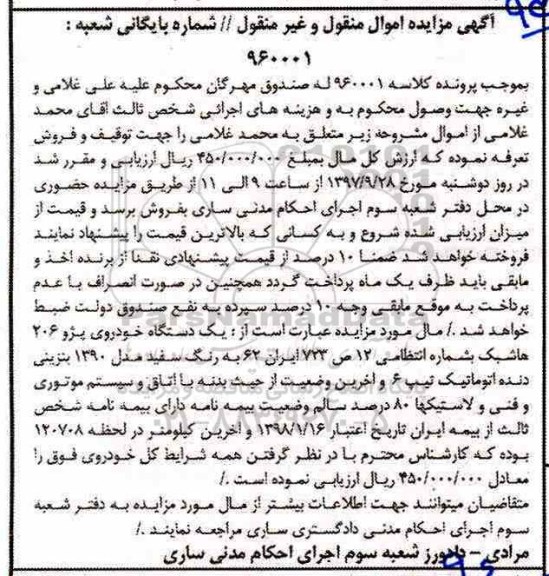 آگهی مزایده اموال منقول و غیر منقول // شماره بایگانی شعبه :
۹۶۰۰۰۱
بموجب پرونده کلاسه ۹۶۰۰۰۱ له صندوق مهرگان محکوم علیه علی غلامی و
غیره جهت وصول محکوم به و هزینه های اجرائی شخص ثالث آقای محمد
غلامی از اموال مشروحه زیر متعلق به محمد غلامی را جهت توقیف و فروش
تعرفه نموده که ارزش کل مال بمبلغ ۴۵۰/۰۰۰/۰۰۰ ریال ارزیابی و مقرر شد
در روز دوشنبه مورخ ۱۳۹۷/۹/۲۸ از ساعت ۹ الی ۱۱ از طریق مزایده حضوری
در محل دفتر شعبه سوم اجرای احکام مدنی ساری بفروش برسد و قیمت از
میزان ارزیابی شده شروع و به کسانی که بالاترین قیمت را پیشنهاد نمایند
فروخته خواهد شد ضمنا ۱۰ درصد از قیمت پیشنهادی نقدا از برنده اخذ و
مابقی باید ظرف یک ماه پرداخت گردد همچنین در صورت انصراف یا عدم
پرداخت به موقع مابقی وجه ۱۰ درصد سپرده به نفع صندوق دولت ضبط
خواهد شد ./ مال مورد مزایده عبارت است از : یک دستگاه خودروی پژو ۲۰۶
هاشبک بشماره انتظامی ۱۲ ص ۷۳۳ ایران ۶۲ به رنگ سفید مدل ۱۳۹۰ بنزینی
دنده اتوماتیک تیپ ۶ و آخرین وضعیت از حیث بدنه یا اتاق و سیستم موتوری
و فنی و لاستیکها ۸۰ درصد سالم وضعیت بیمه نامه دارای بیمه نامه شخص
ثالث از بیمه ایران تاریخ اعتبار ۱۳۹۸/۱/۱۶ و آخرین کیلومتر در لحظه ۱۲۰۷۰۸
بوده که کارشناس محترم با در نظر گرفتن همه شرایط کل خودروی فوق را
معادل ۴۵۰/۰۰۰/۰۰۰ ریال ارزیابی نموده است ./
متقاضیان میتوانند جهت اطلاعات بیشتر از مال مورد مزایده به دفتر شعبه
سوم اجرای احکام مدنی دادگستری ساری مراجعه نمایند ./
مرادی – دادورز شعبه سوم اجرای احکام مدنی ساری